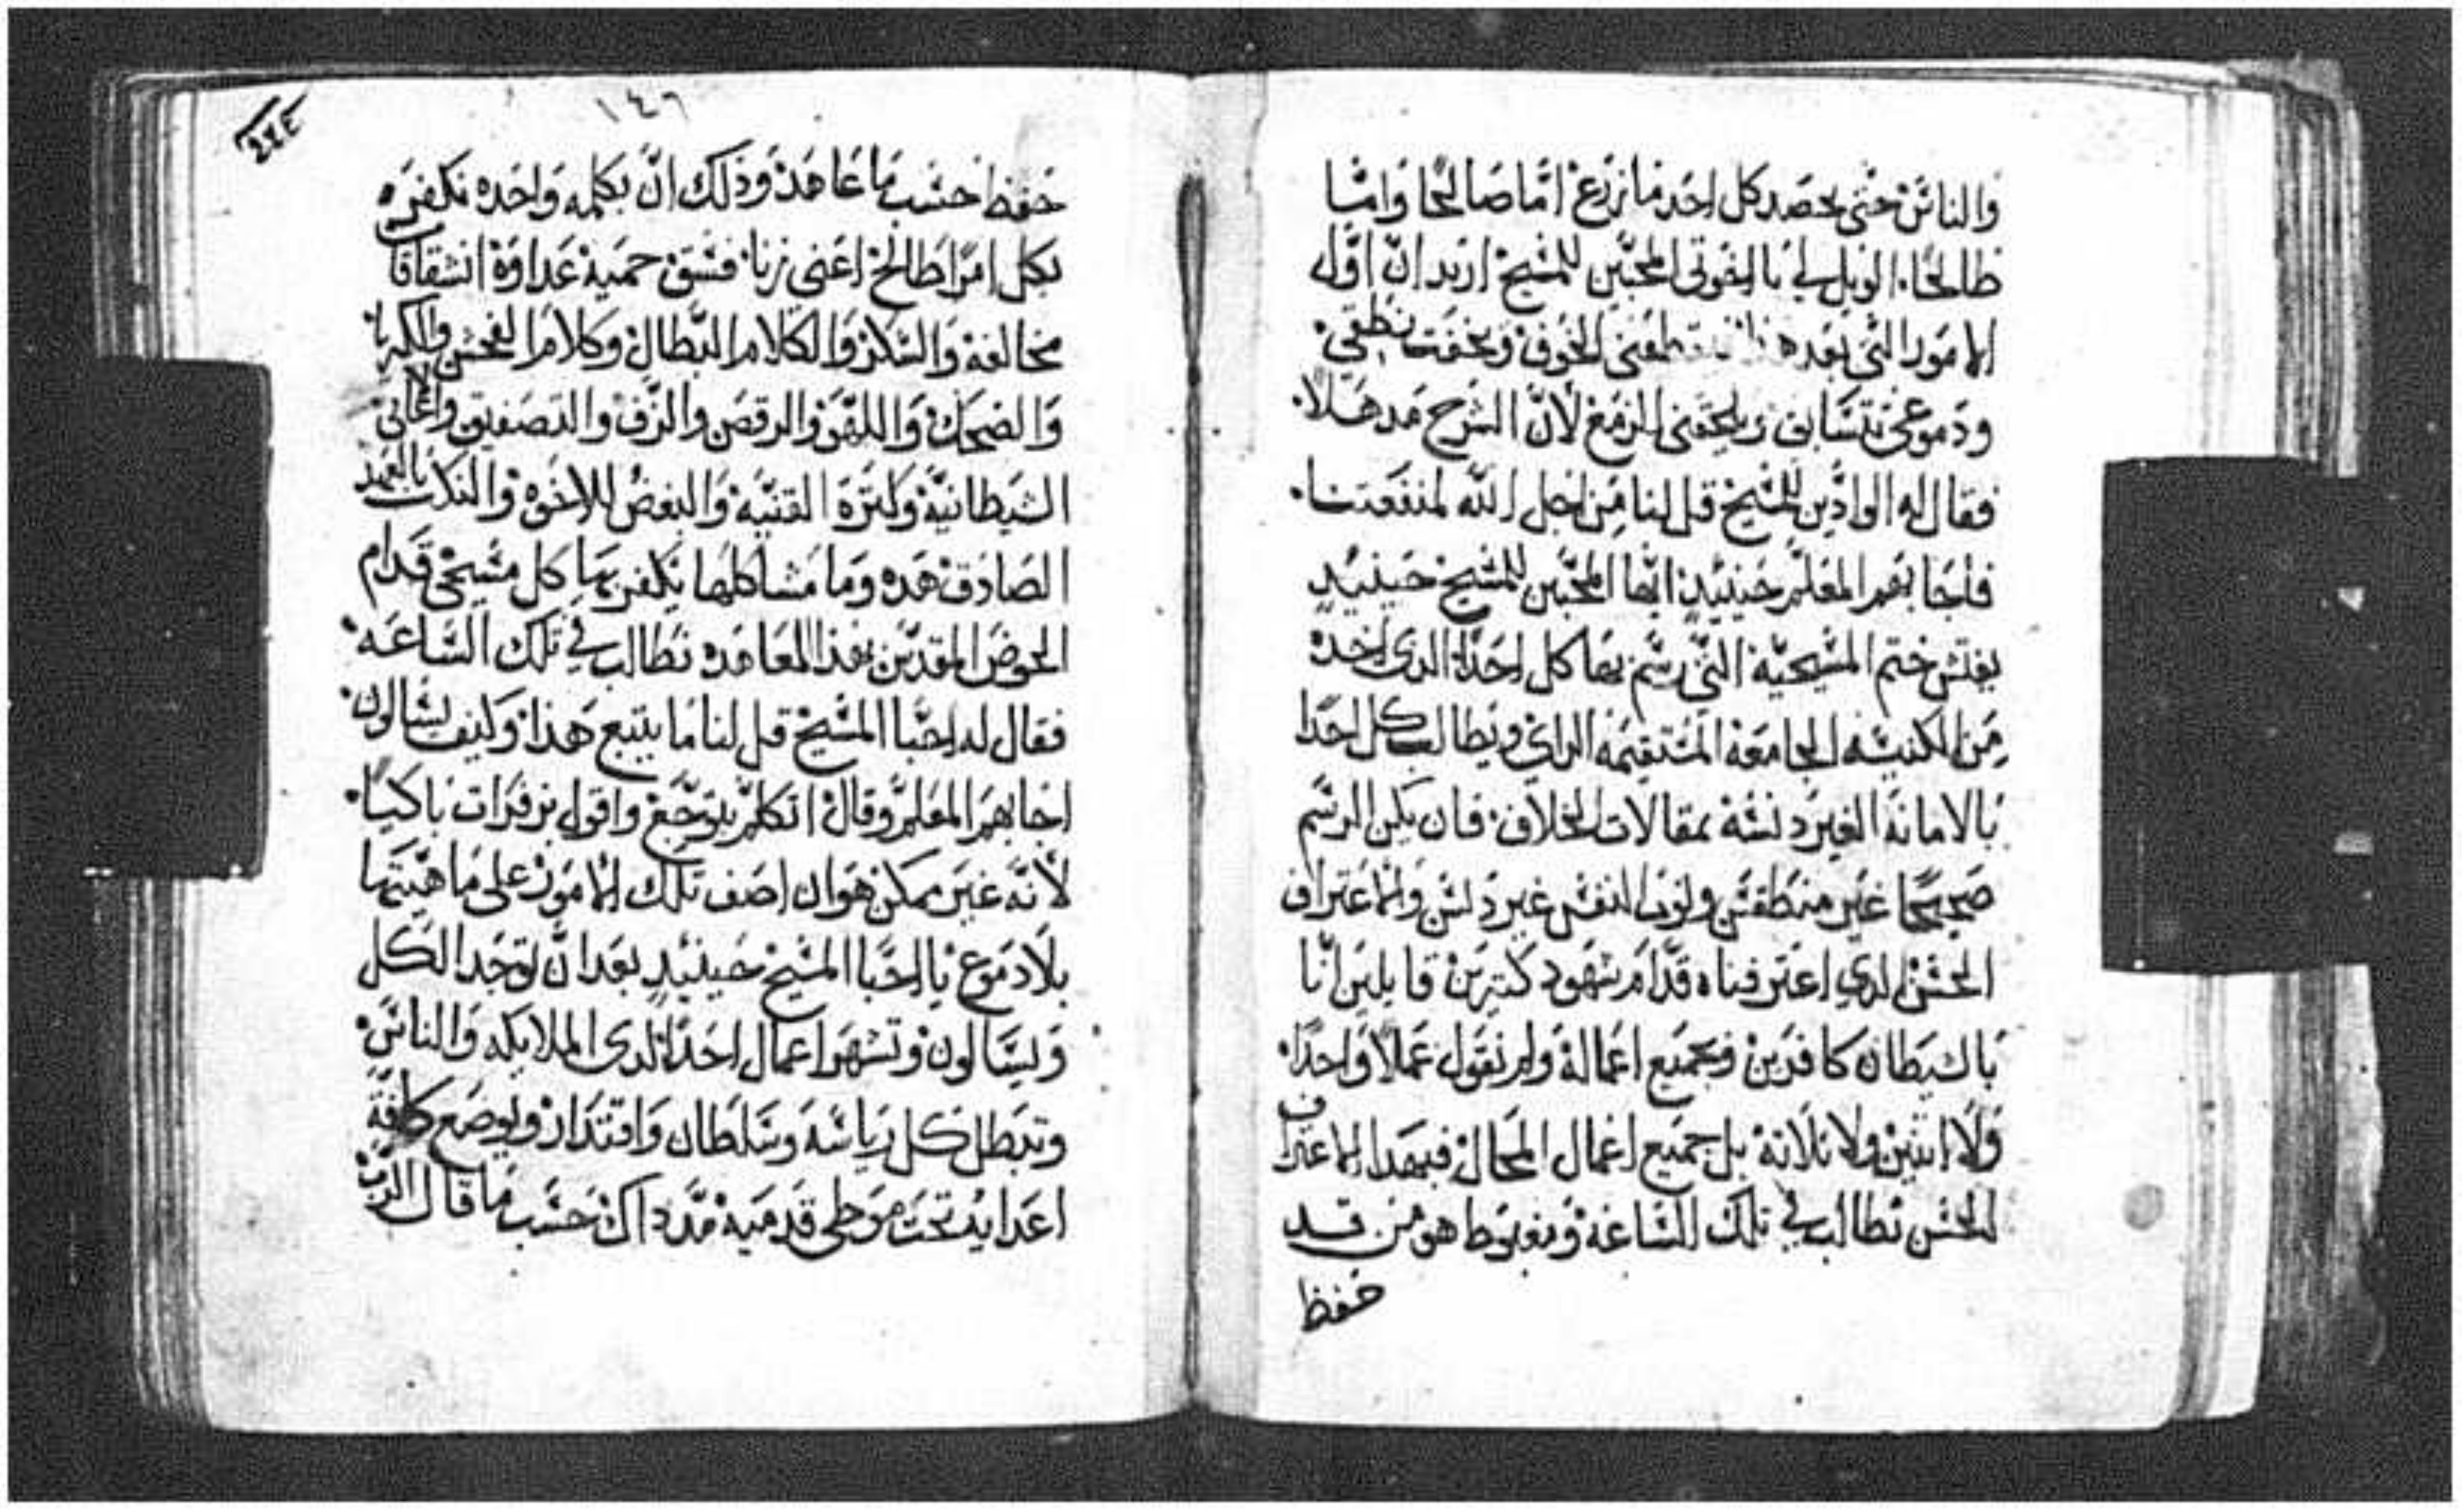 والناس حتى يحصد كل احد ما زرع اما صالحا واما
طالحا. الويل لي يا اخوتي المحبين للمسيح اريد ان اول
الامور التي بعد هذا الخوف ويخفت نطقي.
ودموعي تتسابق ويلحقني الزمع لان الشرح مدهلا.
فقال له الوادين للمسيح قل لنا من اجل الله لمنفعتنا.
فاجابهم المعلم حينيد ايها المحبين للمسيح حينيد
يفتش ختم المسيحية التي رسم بها كل احدا الدى اخده
من الكنيسه الجامعة المستقيمه الراي ويطالب كل احدا
بالامانة الغير دنسة بمقالات الخلاف. فان يكن الرسم
صحيحا غير منطمس وثوب النفس غير دنس والاعتراف
الحسن الدي اعترفناه قدام شهود كتيرين قايلين انا
بالشيطان كافرين وبجميع اعماله ولم نقول عملا واحدا.
ولا اتنين ولا تلاتة بل جميع اعمال المحال فبهدا الاعتراف
الحسن نطالب في تلك الساعة ومغبوطا هو من قد
حفظ
١٤٦
حفظ حسب ما عاهد وذلك ان بكلمه واحده نكفر
بكل امرا طالح اعني زنا فسق حمية عداوة انشقاقا
مخالفة والسكر والكلام البطال وكلام الفحش والكبريا
والضحك واللهو والرقص والزف والتصفيق والاغاني
الشيطانية وكترة القنية والبغض للاخوة والنكات بالعهد
الصادق هده وما مشاكلها نكفر بها كل مسيحي قدام
الحوض المقدس بهذا المعاهده نطالب في تلك الساعه.
فقال له احبا المسيح قل لنا ما يتبع هذا وكيف يسالون.
اجابهم المعلم وقال اتكلم بتوجع واقول بزفرات باكيا.
لانه غير ممكن هو ان اصف تلك الامور على ما هيتها
بلا دموع يا احبا المسيح حينيد بعد ان توجد الكل
ويسالون وتشهر اعمال احدا لدى الملايكه والناس.
وتبطل كل رياسه وسلطان واقتدار ويوضع كافة
اعدايه تحت موطى قدميه مد داك حسب ما قال الرب